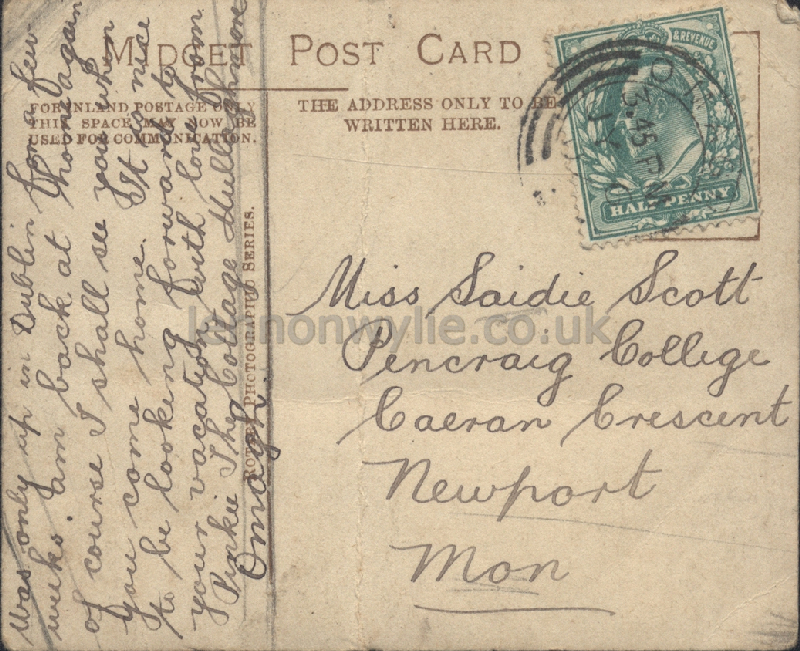 MIDGET POST CARD
FOR INLAND POSTAGE ONLY
THIS SPACE MAY NOW BE
USED FOR COMMUNICATION.
THE ADDRESS ONLY TO BE
WRITTEN HERE.
& REVENUE
HALFPENNY
3.45 PM
JY
Miss Saidie Scott
Pencraig College
Caeran Crescent
Newport
Mon
ROTARY PHOTOGRAPHIC SERIES.
Was only up in Dublin for a few
weeks. am back at home again
of course I shall see you when
you come home. It so nice
to be looking forward to
your vacation with love from
Pinkie The Cottage Mullaghmore
Omagh.
lennonwylie.co.uk